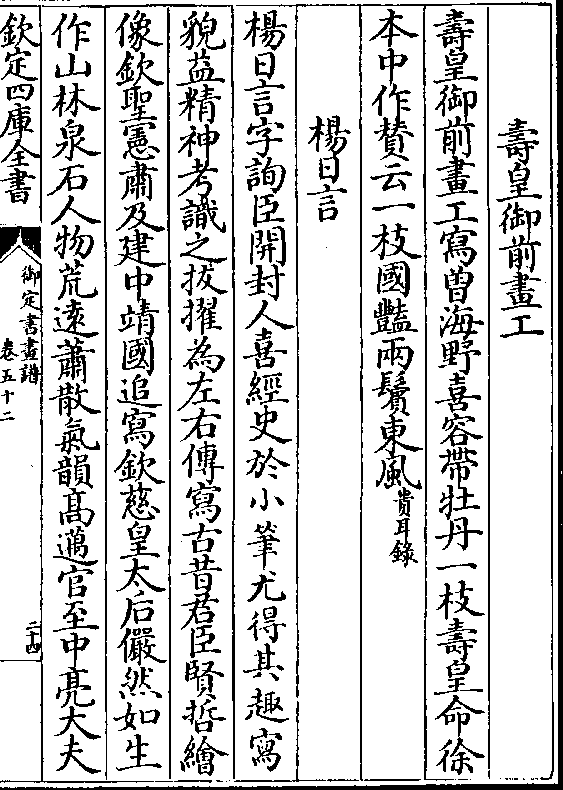 壽皇御前畫工
壽皇御前畫工寫曾海野喜容帶牡丹一枝壽皇命徐
本中作贊云一枝國豔兩鬢東風貴耳錄
楊日言
楊日言字詢臣開封人喜經史於小筆尤得其趣寫
貌益精神考識之拔擢為左右傳寫古昔君臣賢哲繪
像欽聖憲肅及建中靖國追寫欽慈皇太后儼然如生
作山林泉石人物荒逺蕭散氣韻髙邁官至中亮大夫
欽定四庫全書
御定書畫譜
卷五十二
二十四